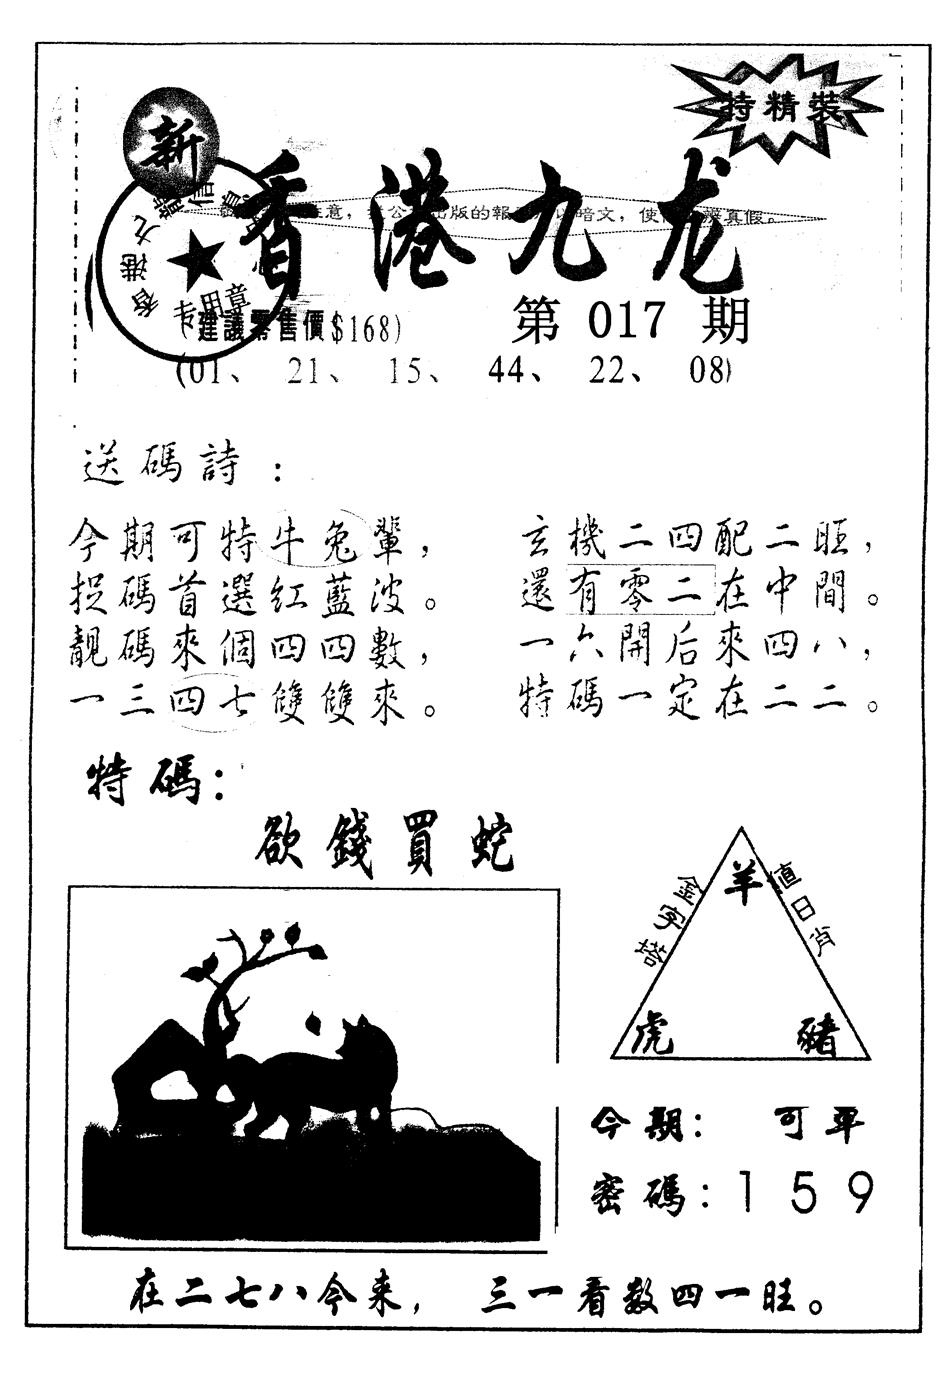 特精裝
新
香港九龙
专用章
(建議零售價$168)
第 017 期
(01、 21、 15、 44、 22、 08)
送碼詩：
今期可特牛兔輩，
捉碼首選紅藍波。
靚碼來個四四數，
一三四七雙雙來。
玄機二四配二旺，
還有零二在中間。
一六開后來四八，
特碼一定在二二。
特碼：
欲錢買蛇
羊
金字塔
值日肖
虎 豬
今期： 可平
密碼：159
在二七八今来， 三一看数四一旺。